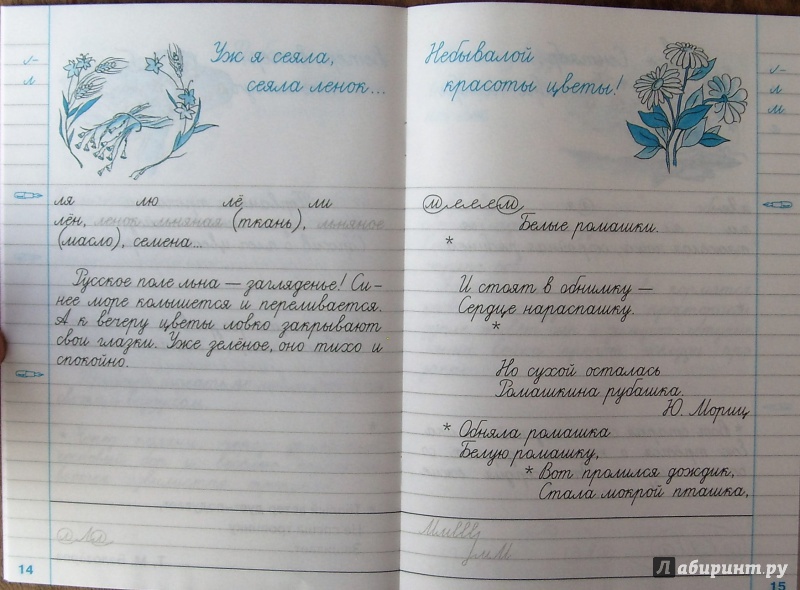 Уж я сеяла,
сеяла ленок...
л
ля лю лё ли
лён, ленок льняная (ткань), льняное
(масло), семена...
Русское поле льна — загляденье! Си-
нее море колышется и переливается.
А к вечеру цветы ловко закрывают
свои глазки. Уже зелёное, оно тихо и
спокойно.
14
Небывалой
красоты цветы!
л
м
Белые ромашки.
*
И стоят в обнимку —
Сердце нараспашку.
*
Но сухой осталась
Ромашкина рубашка.
Ю. Мориц
* Обняла ромашка
Белую ромашку,
* Вот пролился дождик,
Стала мокрой пташка,
15
Лабиринт.ру